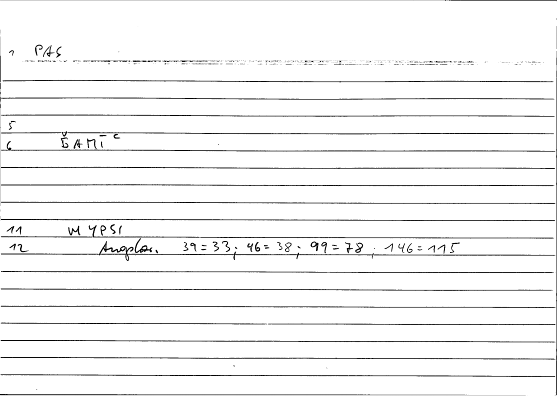 1 PAS
5
6 ŠAMIC
11 W YPSI
12 Anglos. 39=33; 46=38; 99=78; 146=115